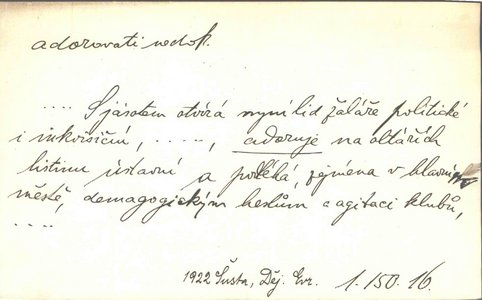 adorovati nedok.
.... S jásotem otvírá nyní lid žaláře politické
i inkvisiční, ....., adoruje na oltářích
listinu ústavní a podléhá, zejména v hlavním
městě, demagogickým heslům a agitaci klubů,
....
1922 Šusta, Děj. Evr. 1.150.16.